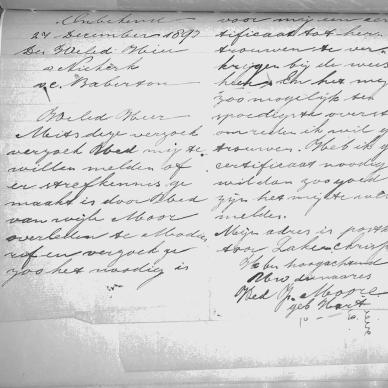 Onbekend
27 December 1897
Den Weled Heer
v/c Baberton
Weled Heer
Mits deze verzoek
verzoek Ued mij te
willen melden of
er sterfkennis ge
maakt is door Ued
van wijle Moor
overleden te
en verzoek ge
zoo het noodig is
voor mij een cer
tificaat tot her
trouwen te ver
krijgen bij de wees
heer En het mij
zoo mogelijk ten
spoedigste overst
om reden ik wil g
trouwen. Heb ik g
certificaat noodig
wil dan zoo goed
zijn het mij te
melden.
Mijn adres is post
toor Lake Chriss
Ik ben hoogachtend
Uwe dienaares
Wed J. Moore
geb Hart